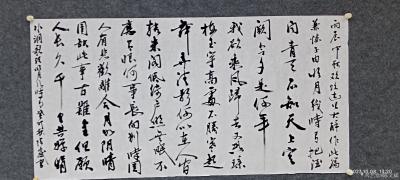 丙辰中秋欢饮达旦大醉作此篇
兼怀子由明月几时有把酒
问青天不知天上宫
阙今夕是何年
我欲乘风归去又恐琼
楼玉宇高处不胜寒起
舞弄清影何似在人间
转朱阁低绮户照无眠不
应有恨何事长向别时圆
人有悲欢离合月有阴晴
圆缺此事古难全但愿
人长久千里共婵娟
水调歌头明月几时有
2023.10.08 13:20